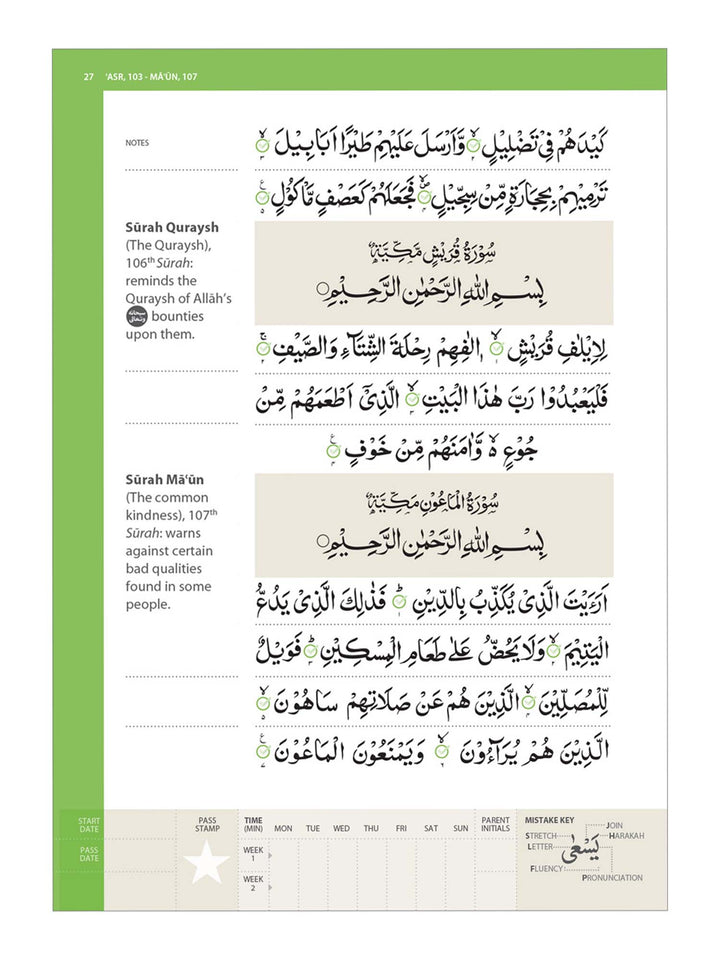 27 ʿASR, 103 - MĀʿŪN, 107
NOTES
كَيْدَهُمْ فِيْ تَضْلِيْلٍ ۙ وَّاَرْسَلَ عَلَيْهِمْ طَيْرًا اَبَابِيْلَ ۙ
تَرْمِيْهِمْ بِحِجَارَةٍ مِّنْ سِجِّيْلٍ ۪ۙ فَجَعَلَهُمْ كَعَصْفٍ مَّاْكُوْلٍ ۧ
Sūrah Quraysh
(The Quraysh),
106th Sūrah:
reminds the
Quraysh of Allāh’s
سبحانه وتعالى bounties
upon them.
سُوْرَةُ قُرَيْشٍ مَّكِّيَّةٌ
بِسْمِ اللّٰهِ الرَّحْمٰنِ الرَّحِيْمِ
لِاِيْلٰفِ قُرَيْشٍ ۙ اٖلٰفِهِمْ رِحْلَةَ الشِّتَآءِ وَالصَّيْفِ ۚ
فَلْيَعْبُدُوْا رَبَّ هٰذَا الْبَيْتِ ۙ الَّذِيْٓ اَطْعَمَهُمْ مِّنْ
جُوْعٍ ۙ۬ وَّاٰمَنَهُمْ مِّنْ خَوْفٍ ۧ
Sūrah Māʿūn
(The common
kindness), 107th
Sūrah: warns
against certain
bad qualities
found in some
people.
سُوْرَةُ الْمَاعُوْنِ مَكِّيَّةٌ
بِسْمِ اللّٰهِ الرَّحْمٰنِ الرَّحِيْمِ
اَرَءَيْتَ الَّذِيْ يُكَذِّبُ بِالدِّيْنِ ؕ فَذٰلِكَ الَّذِيْ يَدُعُّ
الْيَتِيْمَ ۙ وَلَا يَحُضُّ عَلٰى طَعَامِ الْمِسْكِيْنِ ؕ فَوَيْلٌ
لِّلْمُصَلِّيْنَ ۙ الَّذِيْنَ هُمْ عَنْ صَلَاتِهِمْ سَاهُوْنَ ۙ
الَّذِيْنَ هُمْ يُرَآءُوْنَ ۙ وَيَمْنَعُوْنَ الْمَاعُوْنَ ۧ
START DATE
PASS DATE
PASS STAMP
TIME (MIN) MON TUE WED THU FRI SAT SUN PARENT INITIALS
WEEK 1
WEEK 2
MISTAKE KEY
JOIN
STRETCH HARAKAH
LETTER
يَسْعٰى
FLUENCY
PRONUNCIATION